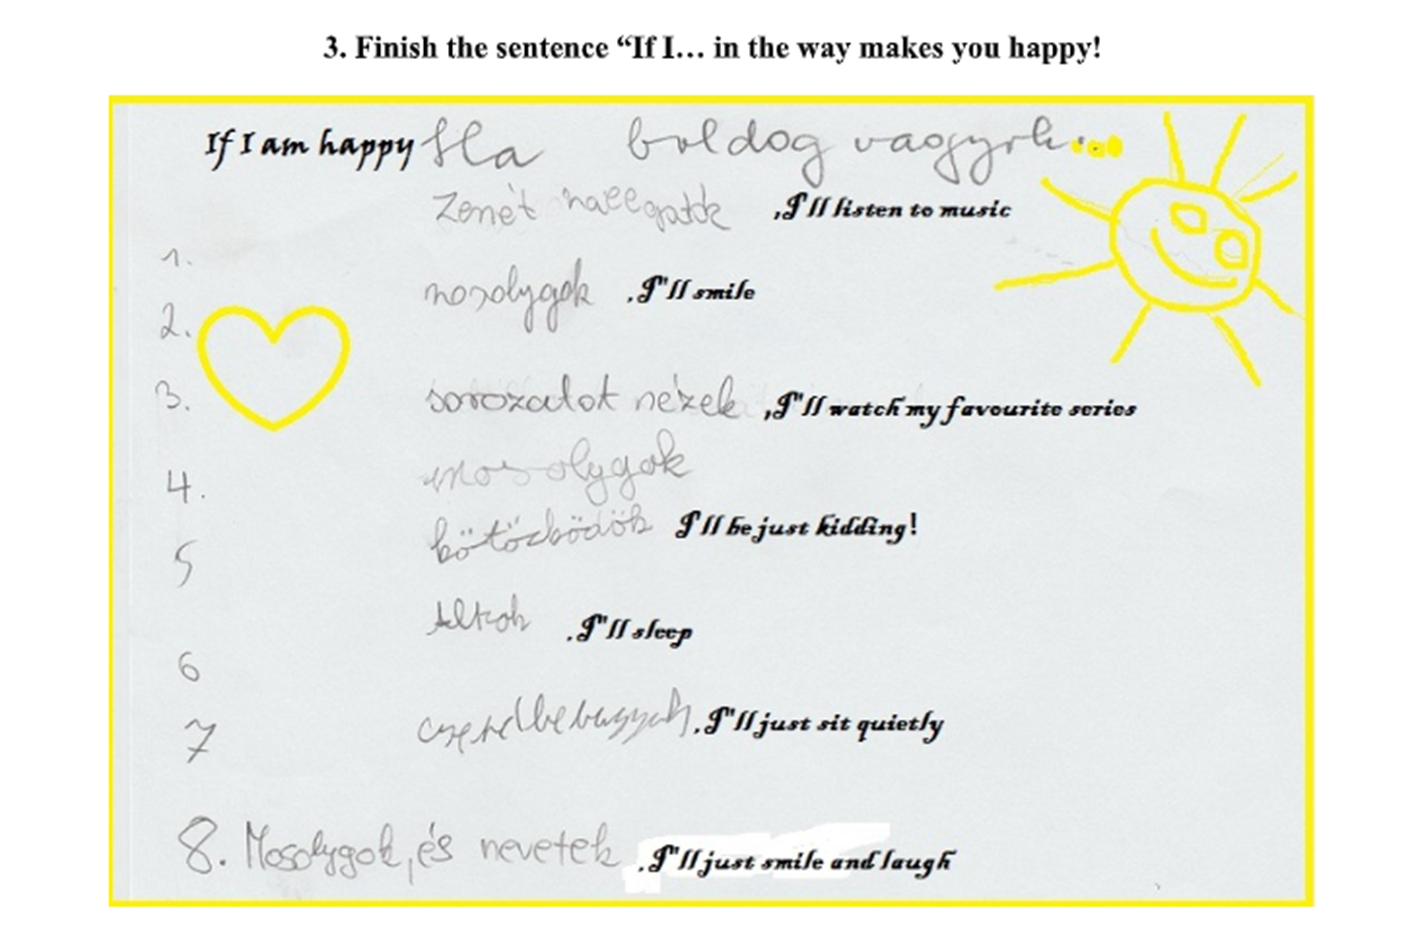 3. Finish the sentence “If I… in the way makes you happy!
If I am happy Ha boldog vagyok...
Zenét hallgatok ,I'll listen to music
1.
mosolygok .I"ll smile
2.
3. sorozatot nézek ,I"ll watch my favourite series
4. mosolygok
5 I'll be just kidding!
.I"ll sleep
6
7 ,I"ll just sit quietly
8. Mosolygok, és nevetek .I"ll just smile and laugh